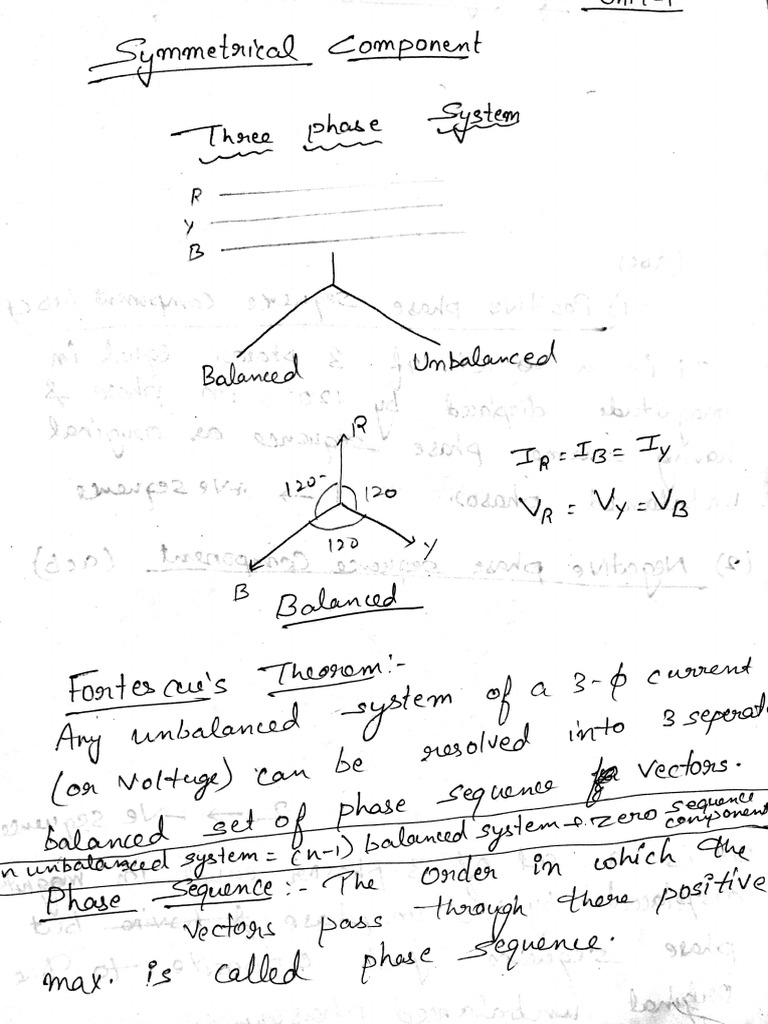 Unit-1
Symmetrical Component
Three phase System
R
Y
B
Balanced Unbalanced
R
120 120
120
B Y
Balanced
I_R = I_B = I_Y
V_R = V_Y = V_B
Fortescue's Theorem:-
Any unbalanced system of a 3-ϕ current
(or Voltage) can be resolved into 3 seperate
balanced set of phase sequence vectors.
n unbalanced system = (n-1) balanced system + zero sequence component
Phase Sequence:- The order in which the
vectors pass through there positive
max. is called phase sequence.